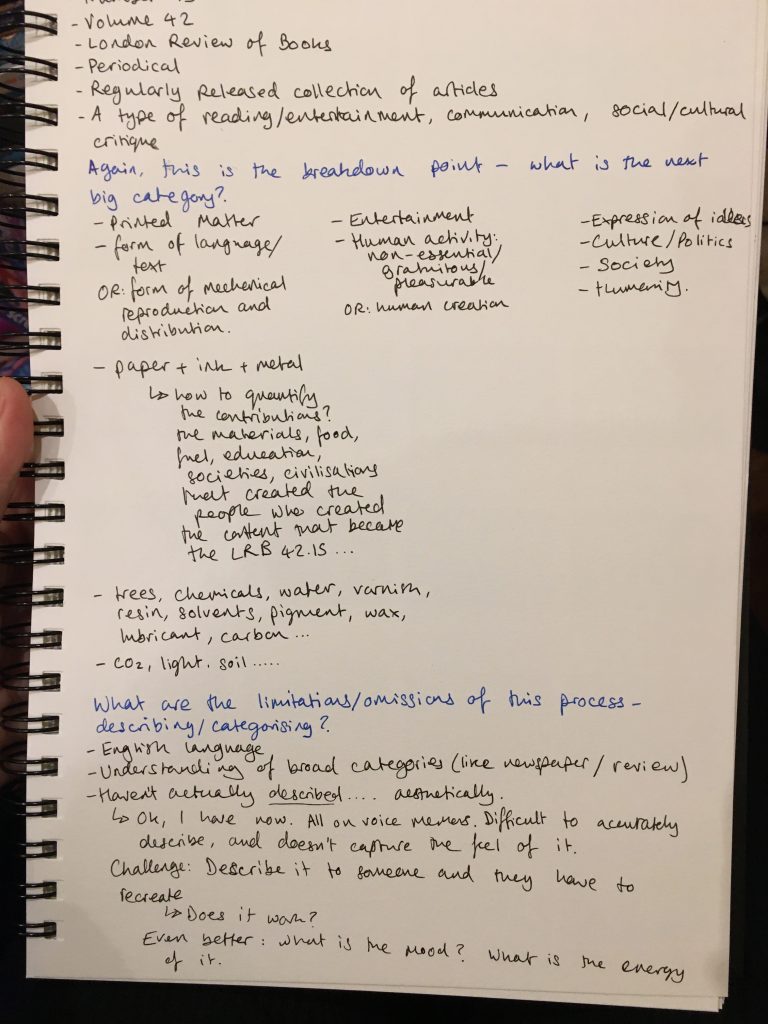 - Volume 42
- London Review of Books
- Periodical
- Regularly Released collection of articles
- A type of reading/entertainment, communication, social/cultural
critique
Again, this is the breakdown point - what is the next
big category?
- Printed Matter
- form of language/
text
OR: form of mechanical
reproduction and
distribution.
- Entertainment
- Human activity:
non-essential/
gratuitous/
pleasurable
OR: human creation
- Expression of ideas
- Culture/Politics
- Society
- Humanity.
- paper + ink + metal
↳ how to quantify
the contributions?
the materials, food,
fuel, education,
societies, civilisations
that created the
people who created
the content that became
the LRB 42.15 ...
- trees, chemicals, water, varnish,
resin, solvents, pigment, wax,
lubricant, carbon ...
- CO2, light. soil .....
What are the limitations/omissions of this process -
describing/categorising?
- English language
- Understanding of broad categories (like newspaper/review)
- Haven't actually described .... aesthetically.
↳ Ok, I have now. All on voice memos. Difficult to accurately
describe, and doesn't capture the feel of it.
Challenge: Describe it to someone and they have to
recreate
↳ Does it work?
Even better: what is the mood? What is the energy
of it.